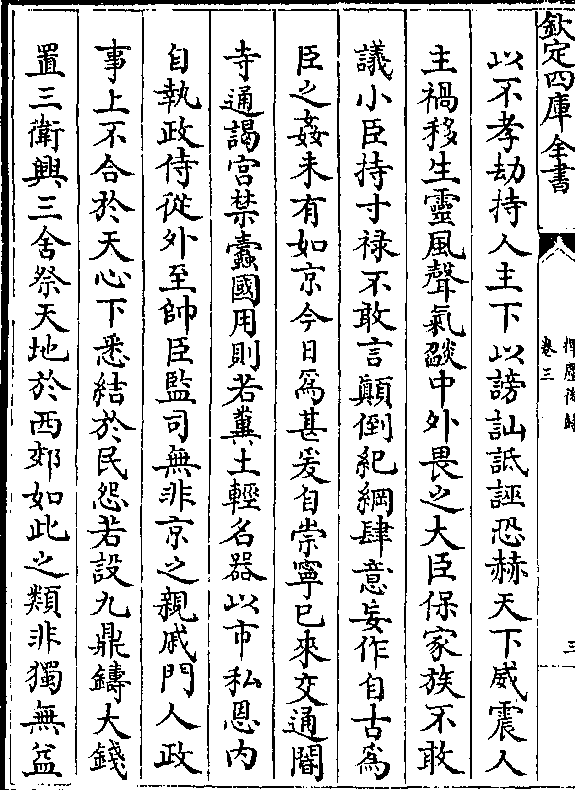 欽定四庫全書
揮麈後録
卷三
三
以不孝劫持人主下以謗訕詆誣恐赫天下威震人
主禍移生靈風聲氣燄中外畏之大臣保家族不敢
議小臣持寸禄不敢言顛倒紀綱肆意妄作自古爲
臣之姦未有如京今日爲甚爰自崇寧已來交通閽
寺通謁宫禁蠧國用則若糞土輕名器以市私恩内
自執政侍從外至帥臣監司無非京之親戚門人政
事上不合於天心下悉結於民怨若設九鼎鑄大錢
置三衛興三舍祭天地於西郊如此之類非獨無益